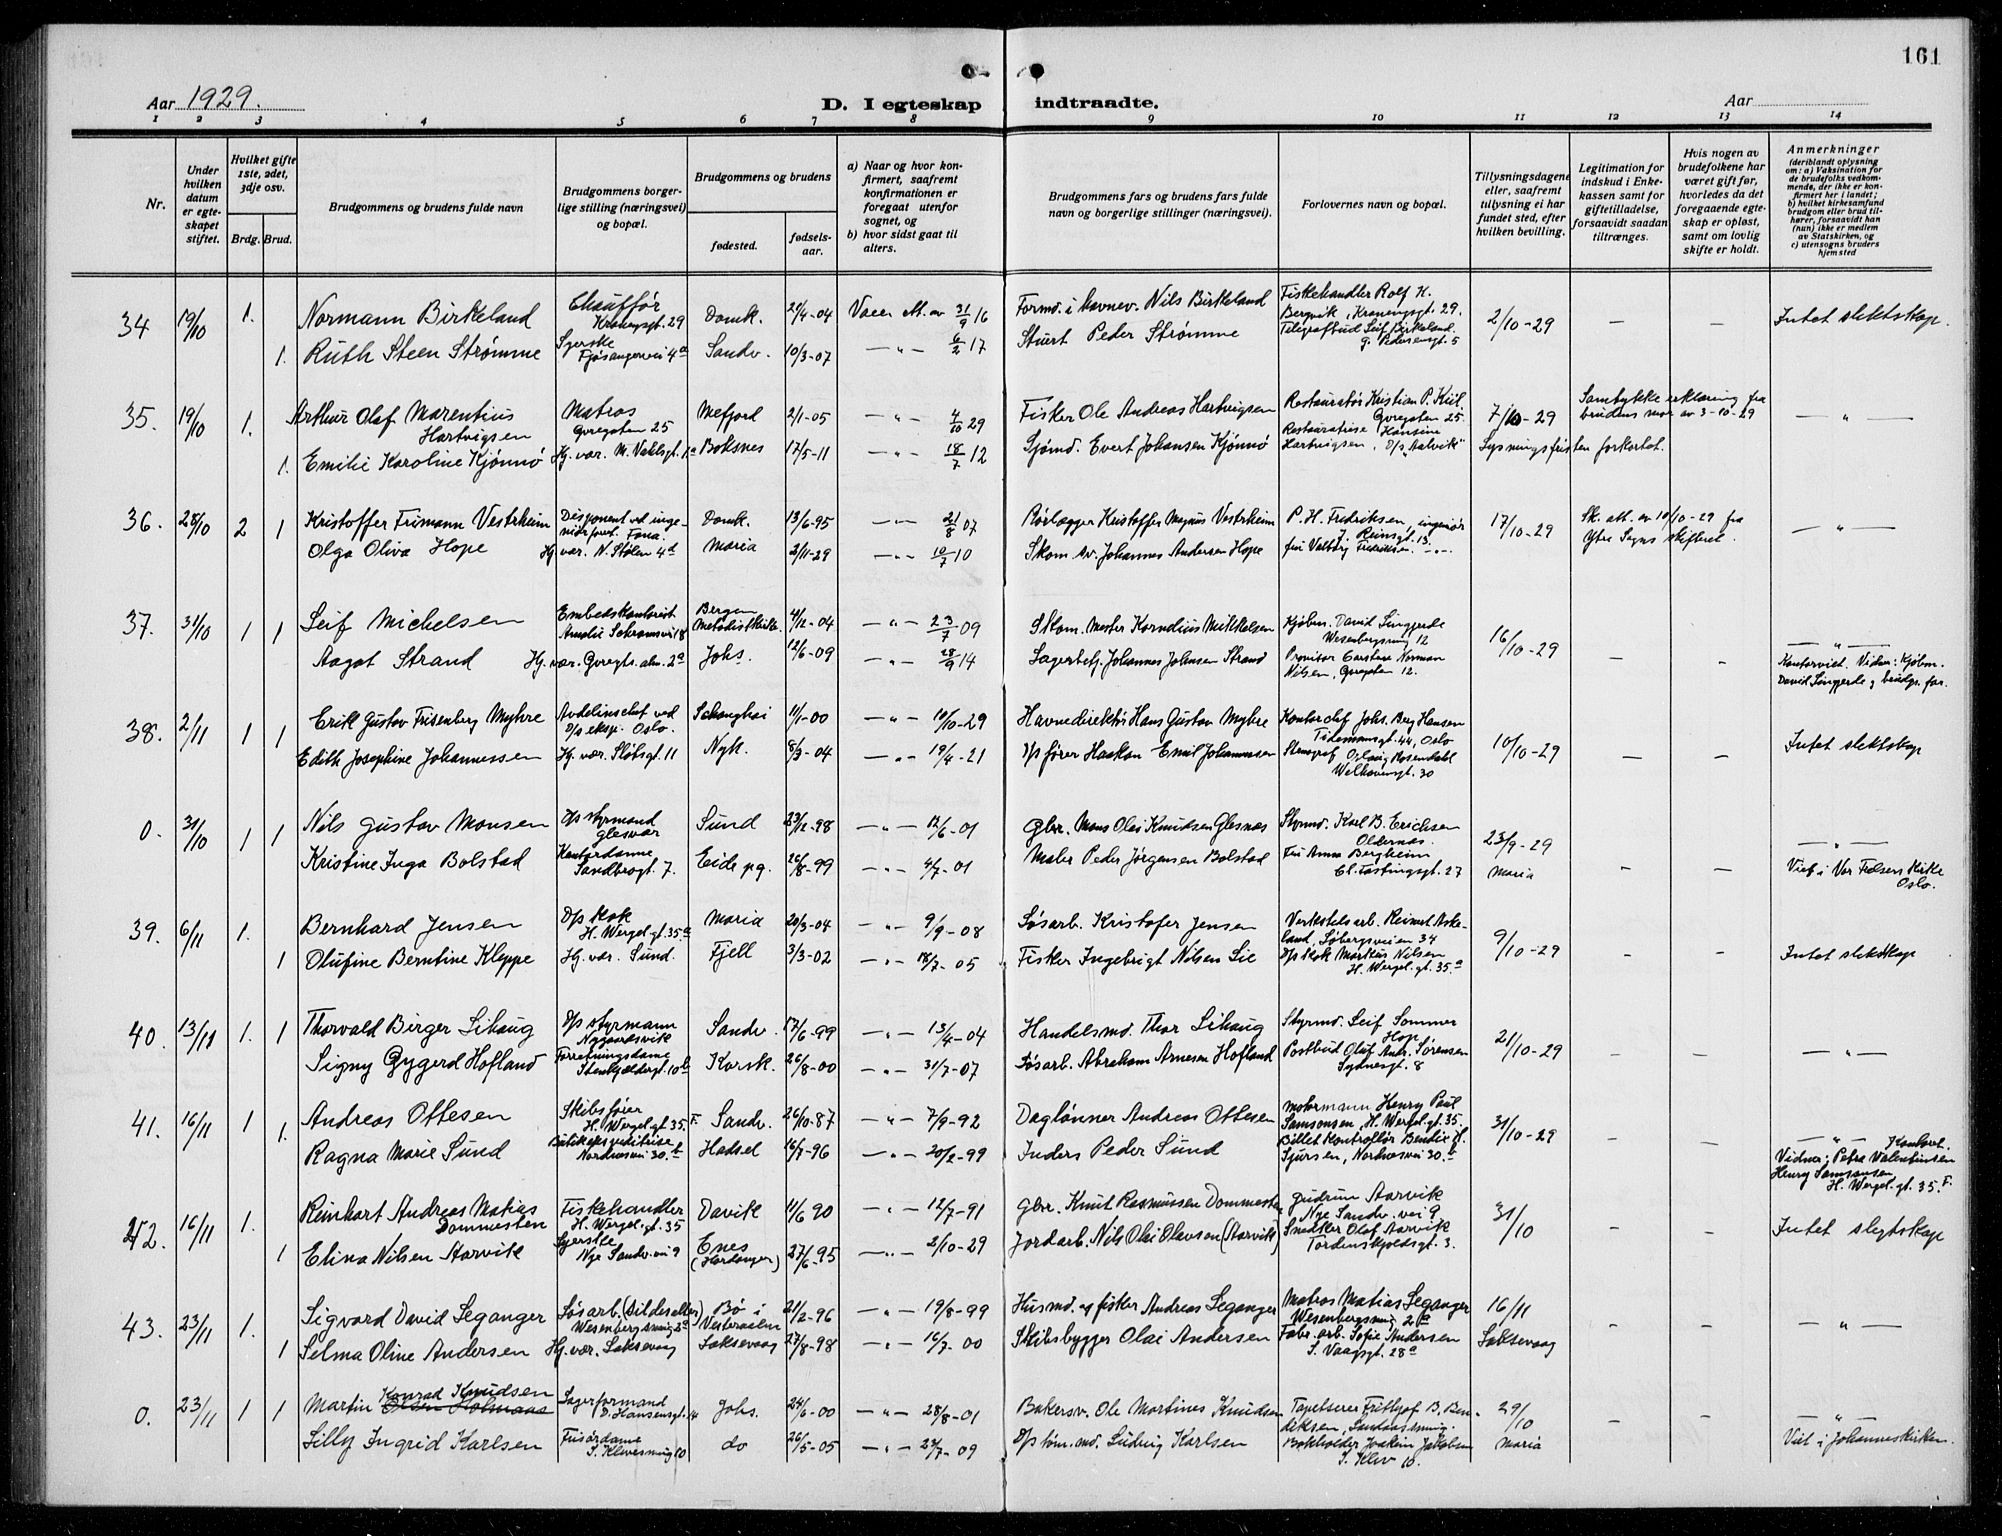 161
Aar 1929.
D. I egteskap indtraadte.
Aar
1 2 3 4 5 6 7 8 9 10 11 12 13 14
Nr.
Under hvilken datum er egteskapet stiftet.
Hvilket gifte 1ste, 2det, 3dje osv.
Brdg. Brud.
Brudgommens og brudens fulde navn
Brudgommens borgerlige stilling (næringsvei) og bopæl.
Brudgommens og brudens
fødested.
fødselsaar.
a) Naar og hvor konfirmert, saafremt konfirmationen er foregaat utenfor sognet, og
b) hvor sidst gaat til alters.
Brudgommens fars og brudens fars fulde navn og borgerlige stillinger (næringsvei).
Forlovernes navn og bopæl.
Tillysningsdagene eller, saafremt tillysning ei har fundet sted, efter hvilken bevilling.
Legitimation for indskud i Enkekassen samt for giftetilladelse, forsaavidt saadan tiltrænges.
Hvis nogen av brudefolkene har været gift før, hvorledes da det foregaaende egteskap er opløst, samt om lovlig skifte er holdt.
Anmerkninger
(deriblandt oplysning om: a) Vaksination for de brudefolks vedkommende, der ikke er konfirmert her i landet; b) hvilket kirkesamfund brudgom eller brud tilhører, forsaavidt han (hun) ikke er medlem av Statskirken, og c) utensogns bruders hjemsted
34 19/10 1. Normann Birkeland Chauffør Kronengsgt. 29 Domk. 21/4-04 Vacc. att. av 31/9 16 Formd. i havnev. Nils Birkeland Fiskehandler Rolf H. Bergvik, Kronengsgt. 29. 2/10-29 — — Intet slektskap.
1. Ruth Steen Strømme Syerske Fjøsangervei 4a Sandv. 10/3-07 — " — 6/2 17 Stuert Peder Strømme Telegrafbud Leif Birkeland G. Pedersensgt. 5
35. 19/10 1. Arthur Olaf Marentius Hartvigsen Matros Øvregaten 25 Mefjord 2/1-05 — " — 4/10 29 Fisker Ole Andreas Hartvigsen Restauratør Kristian P. Kiil Øvregaten 25. 7/10-29 Samtykke erklæring fra brudens mor av 3-10-29 — " —
1. Emilie Karoline Kjønnø Hj. vær. M. Vahlsgt. 1a Boksnes 17/5-11 — " — 18/7 12 Sjømd. Evert Johansen Kjønnø Restauratrise Hansine Hartvigsen, D/s "Aalvik" Lysningsfristen forkortet.
36. 28/10 2 1 Kristoffer Frimann Vestrheim Disponent ved ingeniørforret. Fana. Domk. 13/6-95 — " — 21/8 07 Rørlægger Kristoffer Magnus Vestrheim P. H. Fredriksen, ingeniør J. Reinsgt. 13. 17/10-29 Sk. att. av 10/10-29 fra Ytre Sogns skifteret. — " —
Olga Oliva Hope Hj. vær. N. Stølen 4d Maria 2/11-29 — " — 10/7 10 Skom. sv. Johannes Andersen Hope fru Valborg Fredriksen — " —
37. 31/10 1 1 Leif Michelsen Embedskontorist Amalie Schramsvei 8 Bergen Metodistkirke. 4/12-04 — " — 23/7 09 Skom. mester Kornelius Mikkelsen Kjøbm. David Lingjerde Wesenbergsmug 12 16/10-29 — — — " —
Aagot Strand Hj. vær. Øvregts. alm. 2a Johs. 12/6-09 — " — 28/9 14 Lagerbetj. Johannes Johnsen Strand Provisor Carsten Norman Nilsen, Øvregaten 12. Kontorviet. Vidner: Kjøbm. David Lingjerde og brudgs. far.
38. 2/11 1 1 Erik Gustav Frisenberg Myhre Avdelinschef ved D/s eksp. Oslo. Schanghai 11/1-00 — " — 10/10-29 Havnedirektør Hans Gustav Myhre Kontorchef Johs. Berg Hansen Tidemansgt. 44, Oslo 10/10-29 — — Intet slektskap
Edith Josephine Johannessen Hj. vær. Slotsgt. 11 Nyk. 8/3-04 — " — 19/4-21 D/s fører Haakon Emil Johannessen Stenograf Aslaug Rosendahl Welhavensgt. 30
0. 31/10 1 1 Nils Gustav Monsen D/s styrmand Glesvær Sund 23/12-98 — " — 12/6-01 Gbr. Mons Olai Knudsen Glesnæs Styrmd. Karl B. Erichsen Oldernæs. 23/9-29 — — — " —
Kristine Inga Bolstad Kontordame Sandbrogt. 7. Eide pg. 26/8-99 — " — 4/7-01 Maler Peder Jørgensen Bolstad Fru Anna Bergheim Cl. Fastingsgt. 27 Maria Viet i Vor Frelsers Kirke Oslo.
39. 6/11 1. Bernhard Jensen D/s kok H. Wergel. gt. 35.a Maria 20/3-04 — " — 9/9-08 Løsarb. Kristofer Jensen Verkstedsarb. Reinert Askeland, Løbergsveien 34 9/10-29 — — Intet slektskap
1 Olufine Berntine Kleppe Hj. vær. Sund. Fjell 3/3-02 — " — 18/7-05 Fisker Ingebrigt Nilsen Lie D/s kok Markus Nilsen H. Wergel. gt. 35.a
40. 13/11 1. 1 Thorvald Birger Lihaug D/s styrmann Nygaardsvik Sandv. 17/6-99 — " — 13/4-04 Handelsmd. Thor Lihaug Styrmd. Leif Sommer Hop 21/10-29 — — — " —
Signy Gygerd Hofland Forretningsdame Stenkjældergt. 10b Korsk. 26/8-00 — " — 31/7-07 Løsarb. Abraham Arnesen Hofland Postbud Oluf Andr. Sørensen Sydnesgt. 8
41. 16/11 1 1. Andreas Ottesen Skibsfører H. Wergel. gt. 35. F. Sandv. 26/10-87 — " — 7/9-92 Daglønner Andreas Ottesen Motormann Henry Paul Samsonsen, H. Wergel. gt. 35. 31/10-29 — — — " — Kontorv.
Ragna Marie Sund Nordnesvei 30.b Hadsel 16/7-96 — " — 20/2-99 Inders Peder Sund Billet kontrollør Bendix H. Sjursen, Nordnesvei 30.b Vidner: Petra Valentinsen Henry Samsonsen H. Wergel. gt. 35. F.
42. 16/11 1. Reinhart Andreas Matias Dommesten Fiskehandler H. Wergel. gt. 35 Davik 11/6 90 — " — 12/7-91 Gbr. Knut Rasmussen Dommesten Gudrun Aarvik Nye Sandv. vei 9 31/10 — — Intet slegtskap
1 Elina Nilsen Aarvik Syerske Nye Sandv. vei 9 Enes (Hardanger) 27/6-95 — " — 2/10-29 Jordarb. Nils Olai Olavson (Aarvik) Snedker Olaf Aarvik Tordenskjoldsgt. 3.
43. 23/11 1. Sigvard David Leganger Løsarb. (Sildesalter) Wesenbergsmug 2a Bø i Vesteraalen 21/2-96 — " — 19/8-99 Husmd. og fisker Andreas Leganger Matros Matias Leganger Wesenbergsmug 2a 16/11 — — — " —
1 Selma Oline Andersen Hj. vær. Laksevaag Laksevaag 27/8-98 — " — 16/7-00 Skibsbygger Olai Andersen Fabr. arb. Sofie Andersen S. Vaagsgt. 28a Laksevaag
0. 23/11 1 1 Martin Konrad Knudsen Lagerformand D. Hansensgt. 14 Johs. 24/6-00 — " — 28/8-01 Bakersv. Ole Martines Knudsen Tapetserer Frithjof B. Bendiksen, 29/10 — — — " —
Lilly Ingrid Karlsen Frisørdame S. Klevesmug 10 do 26/5-05 — " — 24/7-09 D/s tøm. md. Ludvig Karlsen Bokholder Joakim Jakobsen S. Klev 10. Maria Viet i Johanneskirken.